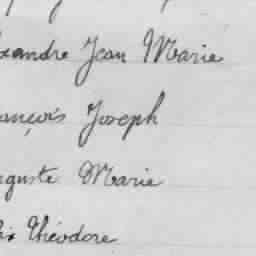 xandre Jean Marie
ançois Joseph
guste Marie
ix Théodore